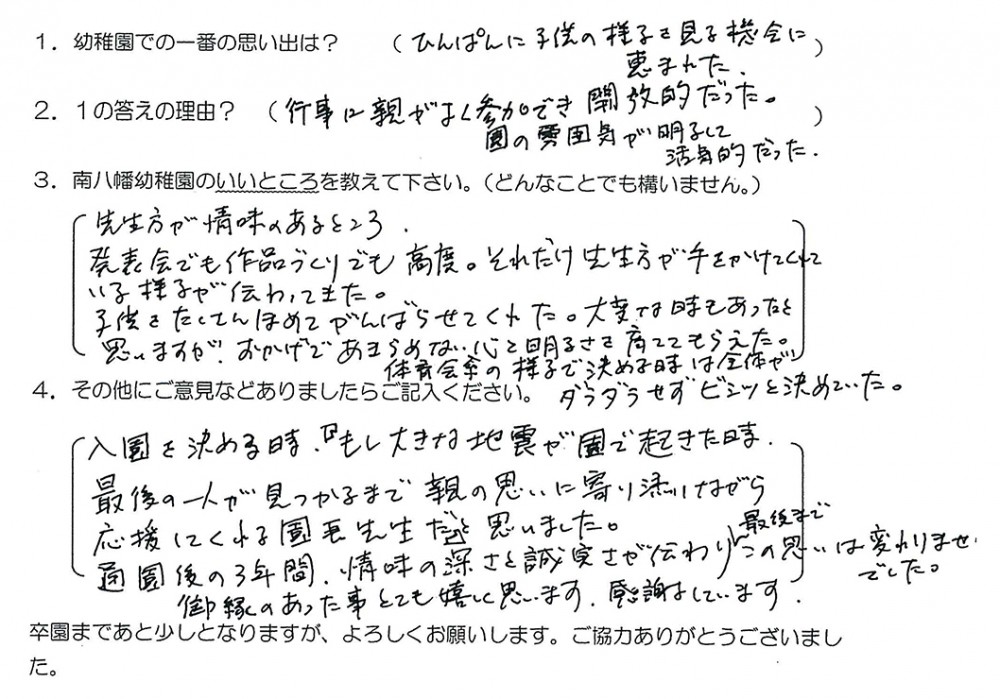 1．幼稚園での一番の思い出は？ （ひんぱんに子供の様子を見る機会に
恵まれた．）
2．1の答えの理由？ （行事に親がよく参加でき開放的だった。
園の雰囲気が明るくて
活気的だった．）
3．南八幡幼稚園のいいところを教えて下さい。（どんなことでも構いません。）
先生方が情味のあるところ．
発表会でも作品づくりでも高度。それだけ先生方が手をかけてくれて
いる様子が伝わってきた。
子供をたくさんほめてがんばらせてくれた。大変な時もあったと
思いますが、おかげであきらめない心と明るさを育ててもらえた。
体育会系の様子で決める時は全体が
ダラダラせずビシッと決めていた。
4．その他にご意見などありましたらご記入ください。
入園を決める時、『もし大きな地震が園で起きた時、
最後の一人が見つかるまで親の思いに寄り添いながら
応援してくれる園長先生だ』と思いました。
通園後の3年間、情味の深さと誠実さが伝わり最後までこの思いは変わりませ
んでした。
御縁のあった事とても嬉しく思います．感謝しています．
卒園まであと少しとなりますが、よろしくお願いします。ご協力ありがとうございまし
た。